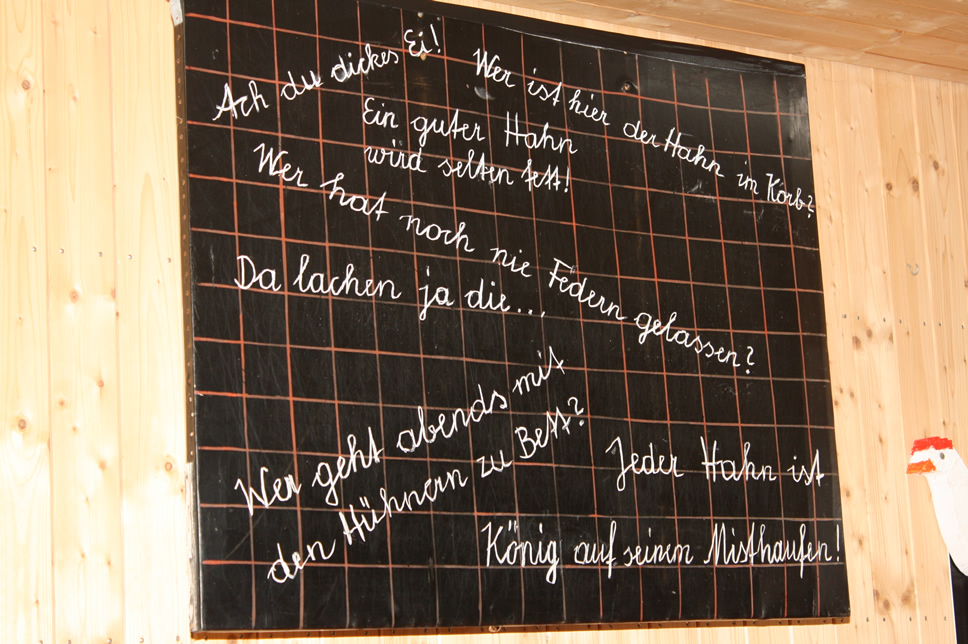 Ach du dickes Ei!
Wer ist hier der Hahn im Korb?
Ein guter Hahn
wird selten fett!
Wer hat noch nie Federn gelassen?
Da lachen ja die...
Wer geht abends mit
den Hühnern zu Bett?
Jeder Hahn ist
König auf seinem Misthaufen!